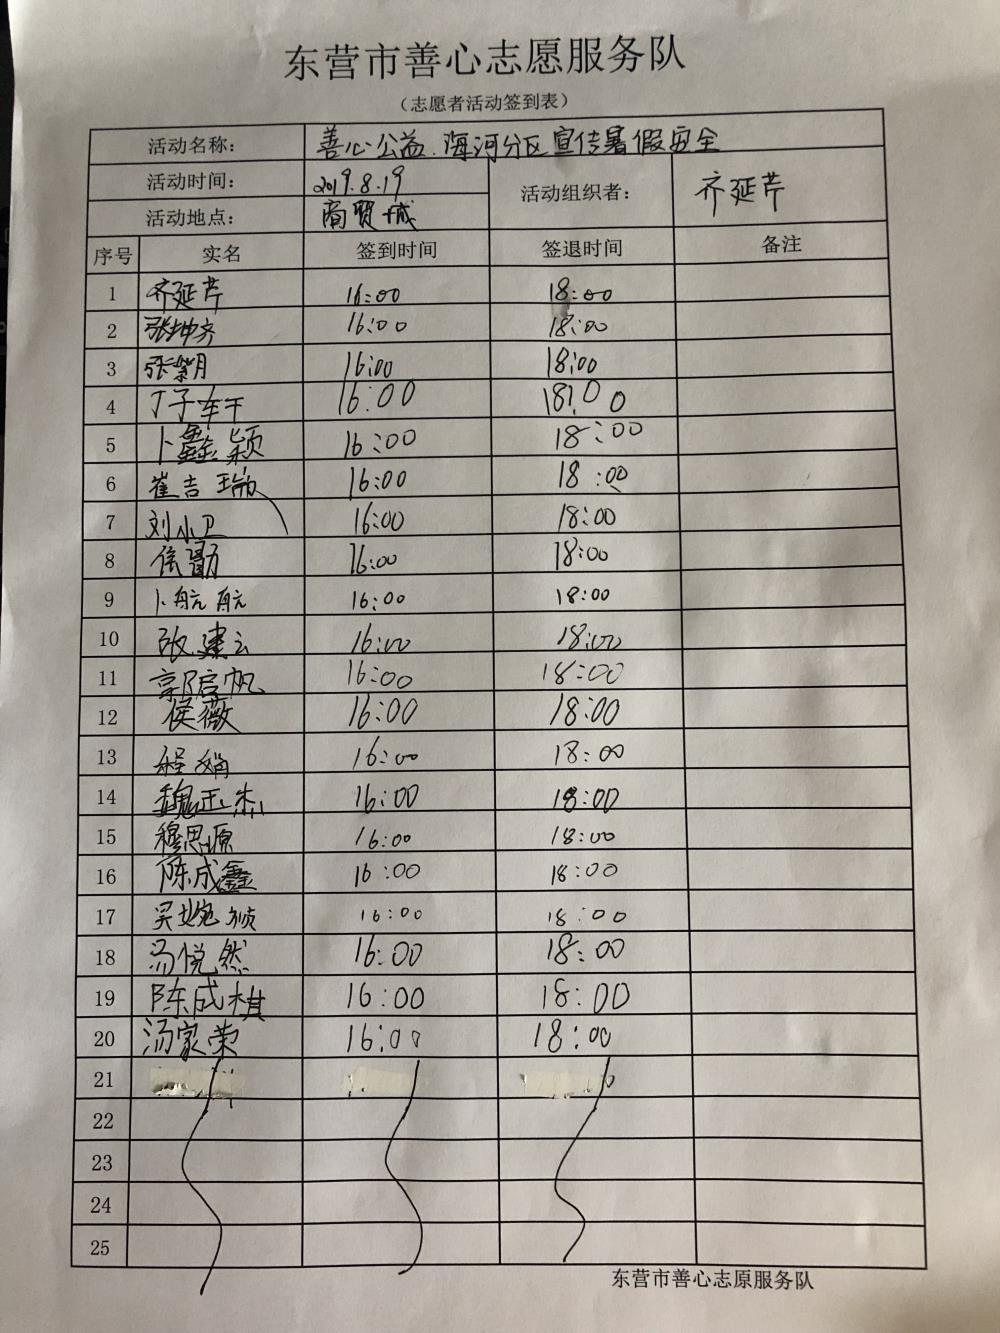 东营市善心志愿服务队
（志愿者活动签到表）
活动名称： 善心公益.海河分区宣传暑假安全
活动时间： 2019.8.19 活动组织者： 齐延芹
活动地点： 商贸城
序号 实名 签到时间 签退时间 备注
1 齐延芹 16:00 18:00
2 张坤齐 16:00 18:00
3 张 16:00 18:00
4 丁子 16:00 18:00
5 卜鑫颖 16:00 18:00
6 崔吉瑞 16:00 18:00
7 刘小卫 16:00 18:00
8 16:00 18:00
9 卜航航 16:00 18:00
10 张建云 16:00 18:00
11 郭启帆 16:00 18:00
12 侯薇 16:00 18:00
13 程娟 16:00 18:00
14 魏玉杰 16:00 18:00
15 穆思源 16:00 18:00
16 陈成鑫 16:00 18:00
17 吴婉祯 16:00 18:00
18 汤悦然 16:00 18:00
19 陈成棋 16:00 18:00
20 汤家荣 16:00 18:00
21
22
23
24
25
东营市善心志原服务队